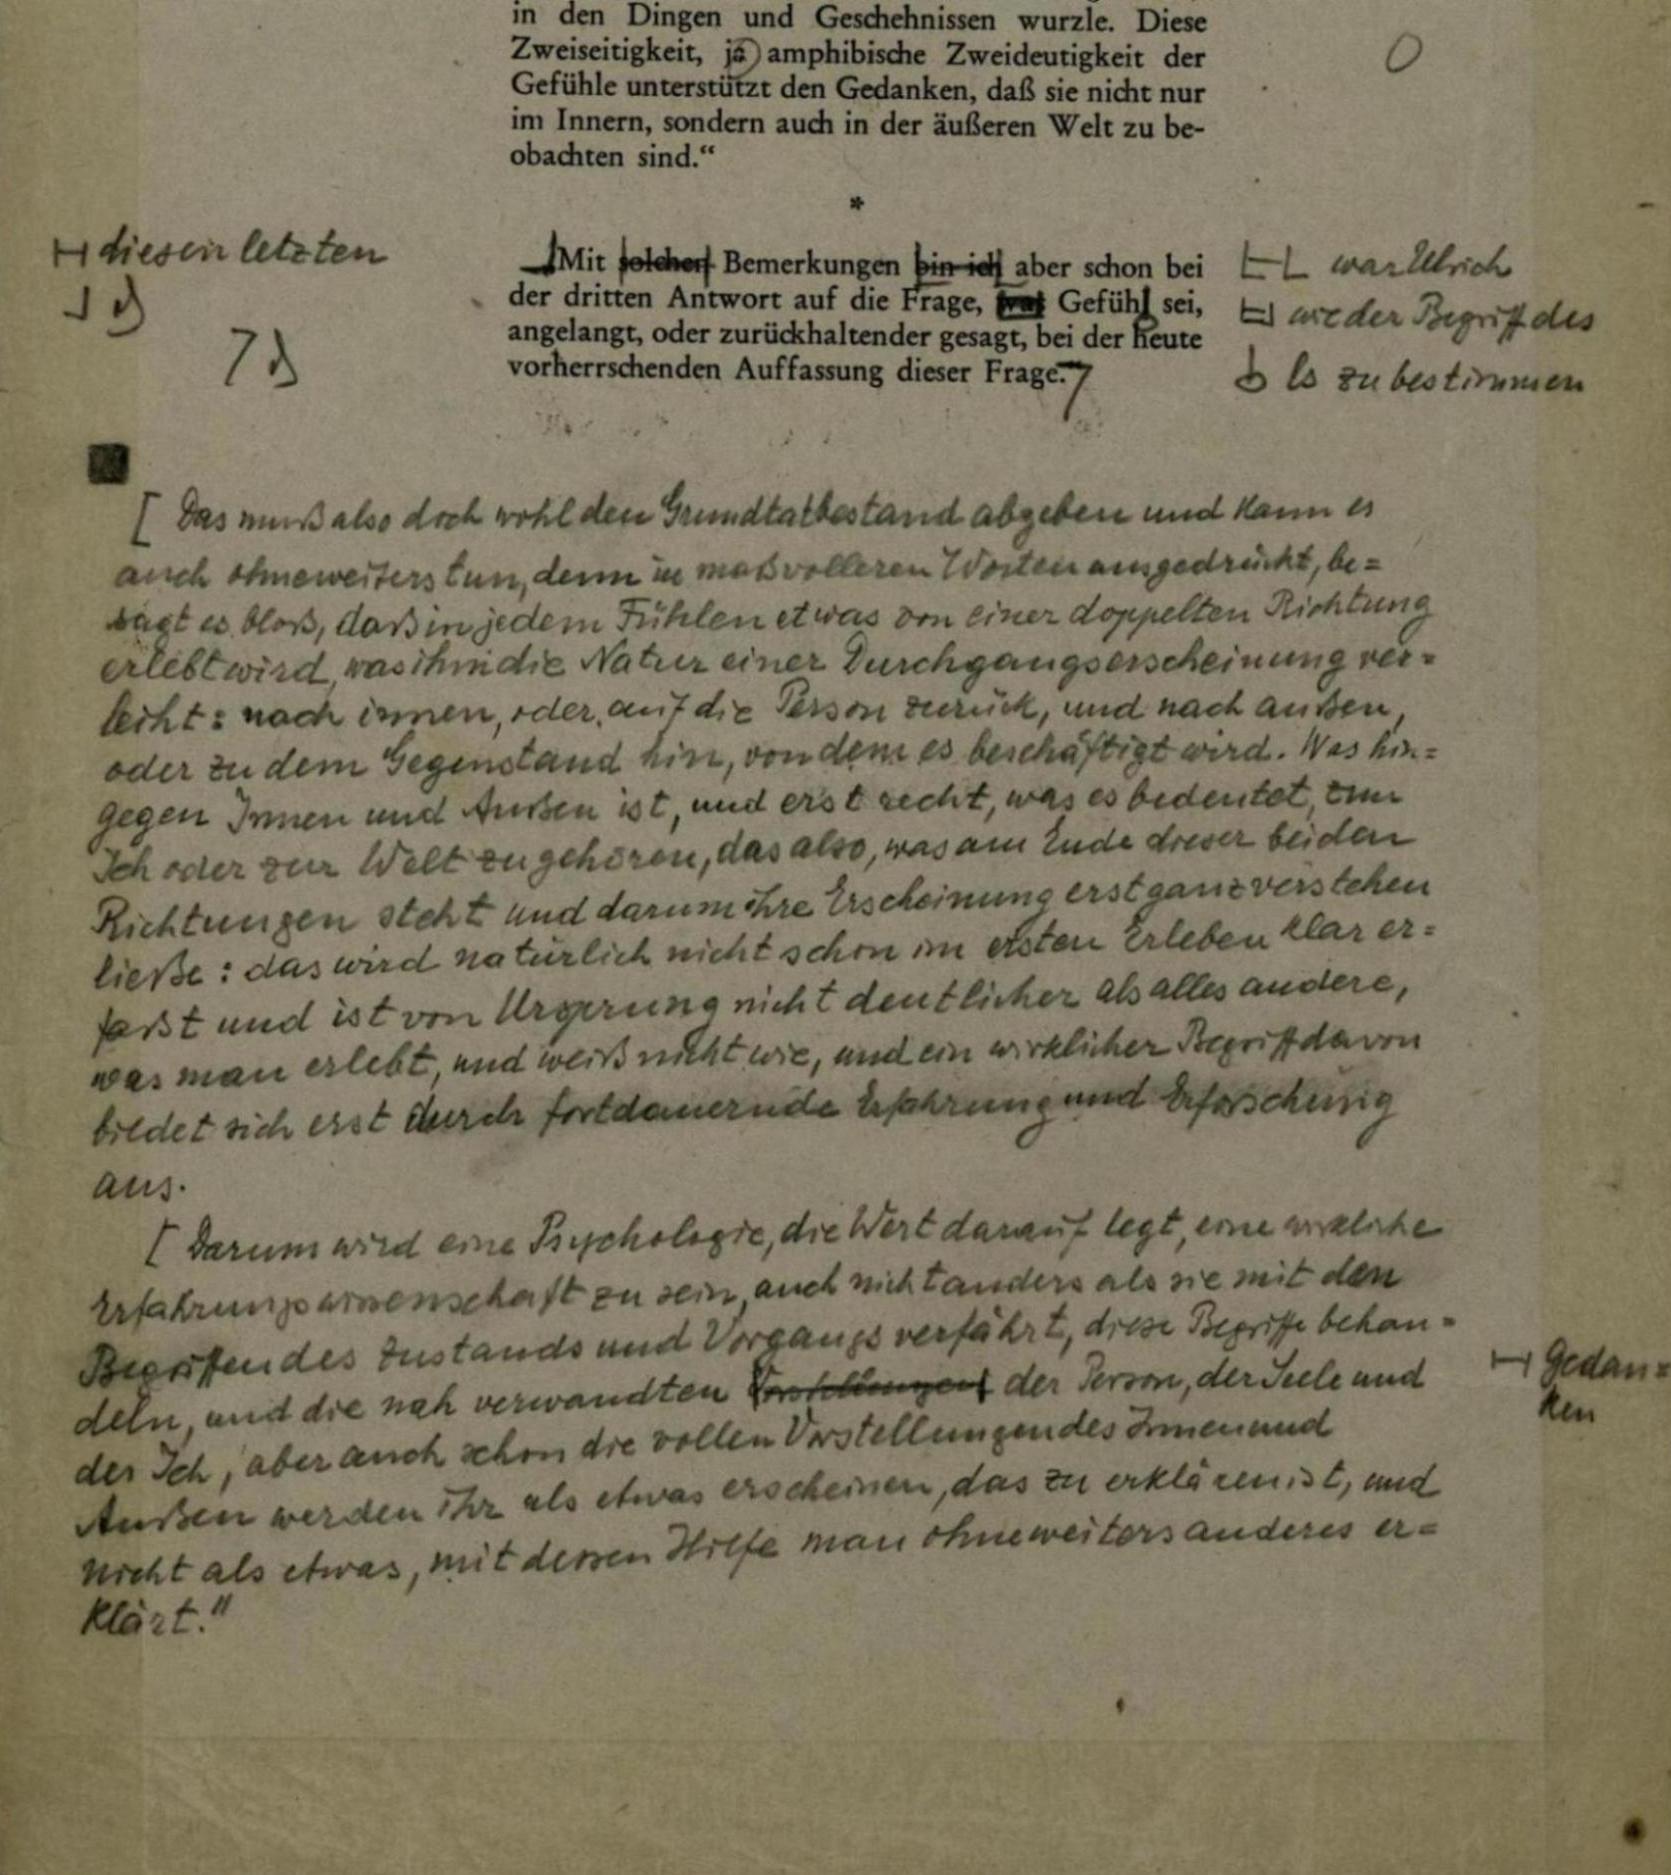 in den Dingen und Geschehnissen wurzle. Diese
Zweiseitigkeit, ja amphibische Zweideutigkeit der
Gefühle unterstützt den Gedanken, daß sie nicht nur
im Innern, sondern auch in der äußeren Welt zu be-
obachten sind.“
*
diesen letzten
Mit solchen Bemerkungen bin ich aber schon bei
war Ulrich
der dritten Antwort auf die Frage, was Gefühl sei,
wie der Begriff des
angelangt, oder zurückhaltender gesagt, bei der heute
vorherrschenden Auffassung dieser Frage.
ls zu bestimmen
[ Das muß also doch wohl den Grundtatbestand abgeben und kann es
auch ohneweiters tun, denn in maßvolleren Worten ausgedrückt, be=
sagt es bloß, daß in jedem Fühlen etwas von einer doppelten Richtung
erlebt wird, was ihm die Natur einer Durchgangserscheinung ver=
leiht: nach innen, oder auf die Person zurück, und nach außen,
oder zu dem Gegenstand hin, von dem es beschäftigt wird. Was hin=
gegen Innen und Außen ist, und erst recht, was es bedeutet, zum
Ich oder zur Welt zu gehören, das also, was am Ende dieser beiden
Richtungen steht und darum ihre Erscheinung erst ganz verstehen
ließe: das wird natürlich nicht schon im ersten Erleben klar er=
faßt und ist von Ursprung nicht deutlicher als alles andere,
was man erlebt, und weiß nicht wie, und ein wirklicher Begriff davon
bildet sich erst durch fortdauernde Erfahrung und Erforschung
aus.
[ Darum wird eine Psychologie, die Wert darauf legt, eine wirkliche
Erfahrungswissenschaft zu sein, auch nicht anders als sie mit den
Begriffen des Zustands und Vorgangs verfährt, diese Begriffe behan=
deln, und die nah verwandten Vorstellungen der Person, der Seele und
Gedan=
ken
des Ich, aber auch schon die vollen Vorstellungen des Innen und
Außen werden ihr als etwas erscheinen, das zu erklären ist, und
nicht als etwas, mit dessen Hilfe man ohneweiters anderes er=
klärt."